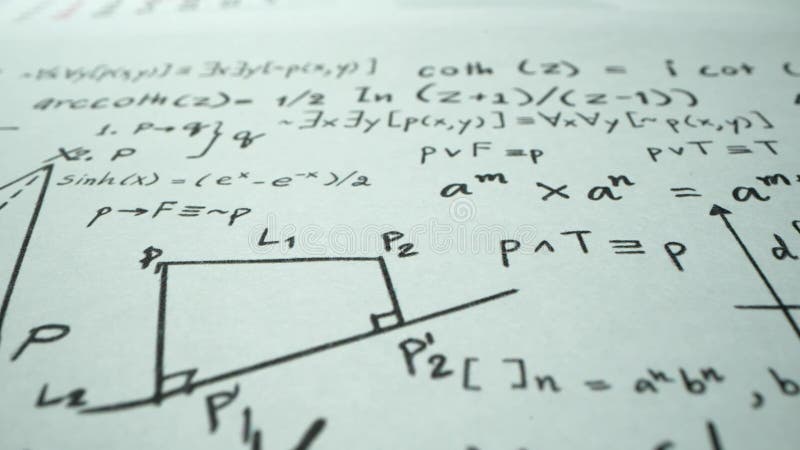 ~∀x∀y[p(x,y)] ≡ ∃x∃y[~p(x,y)]
coth (z) = i cot (
arccoth(z) = 1/2 ln ((z+1)/(z-1))
1. p→q } q
~∃x∃y[p(x,y)] ≡ ∀x∀y[~p(x,y)]
2. p
p∨F≡p
p∨T≡T
sinh(x) = (eˣ - e⁻ˣ)/2
aᵐ × aⁿ = aᵐ⁺
p→F≡~p
L₁
P₁
P₂
p∧T≡p
d
P
P'₂
[ ]n = aⁿbⁿ , b
L₂
P'₁
dreamstime